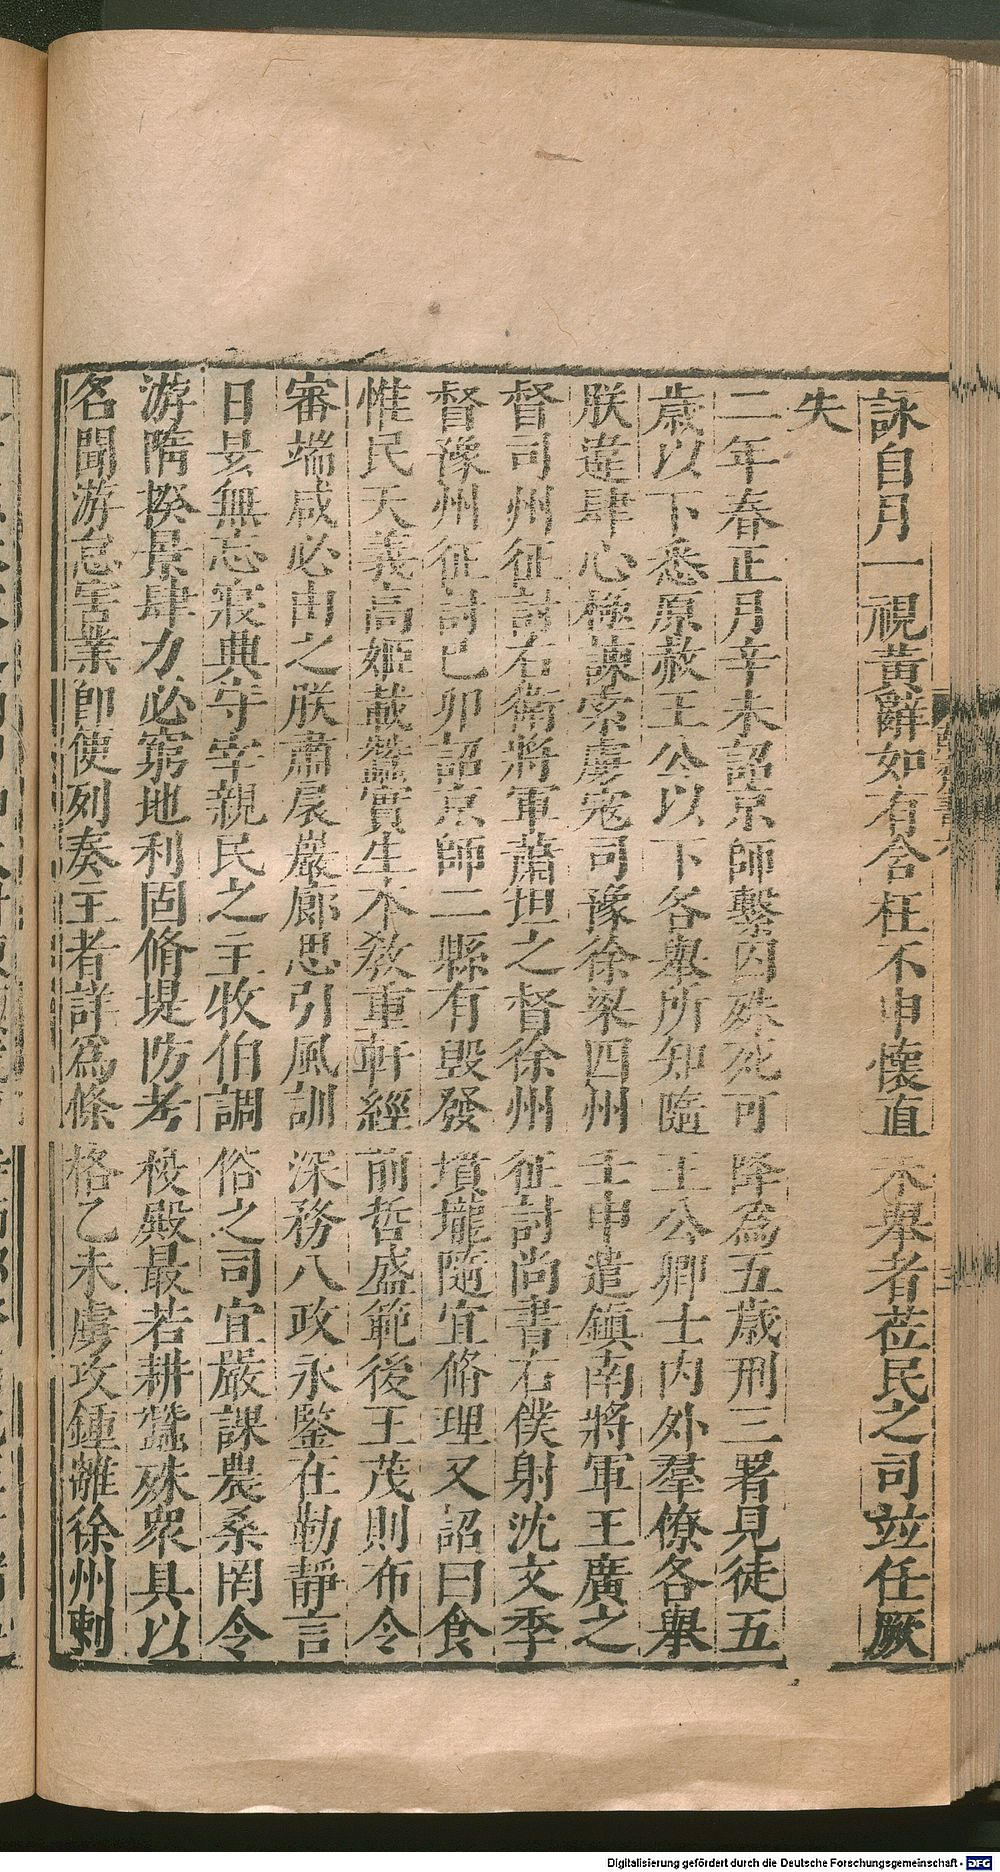 詠自月一視黃辭如有含枉不申懷直不舉者莅民之司竝任厥
失
二年春正月辛未詔京師繫囚殊死可降爲五歲刑三署見徒五
歲以下悉原赦王公以下各舉所知隨王公卿士內外羣僚各舉
朕違肆心極諫索虜寇司豫徐梁四州壬申遣鎮南將軍王廣之
督司州征討右衛將軍蕭坦之督徐州征討尚書右僕射沈文季
督豫州征討己卯詔京師二縣有毀發墳壠隨宜脩理又詔曰食
惟民天義高姬載蠶實生本敎重軒經前哲盛範後王茂則布令
審端咸必由之朕肅扆巖廊思引風訓深務八政永鑒在勤靜言
日昃無忘寢興守宰親民之主牧伯調俗之司宜嚴課農桑罔令
游隋揆景肆力必窮地利固脩堤防考校殿最若耕蠶殊衆具以
名聞游怠害業卽便列奏主者詳爲條格乙未虜攻鍾離徐州刺
Digitalisierung gefördert durch die Deutsche Forschungsgemeinschaft - DFG